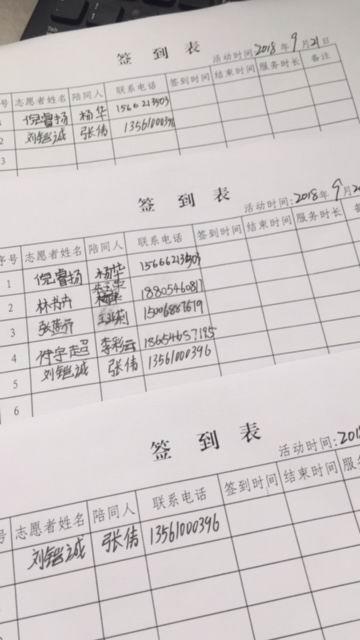 签到表
活动时间:2018年9月21日
号 志愿者姓名 陪同人 联系电话 签到时间 结束时间 服务时长 备注
1 倪睿扬 杨华 15666213503
2 张伟 1356100039
3
签到表
活动时间:2018年9月2
序号 志愿者姓名 陪同人 联系电话 签到时间 结束时间 服务时长 备
1 倪睿扬 杨华 15666213503
2 林书卉 1880546081
3 15006887679
4 李彩云 18654657195
5 张伟 13561000396
6
签到表
活动时间:201
号 志愿者姓名 陪同人 联系电话 签到时间 结束时间 服
张倩 13561000396